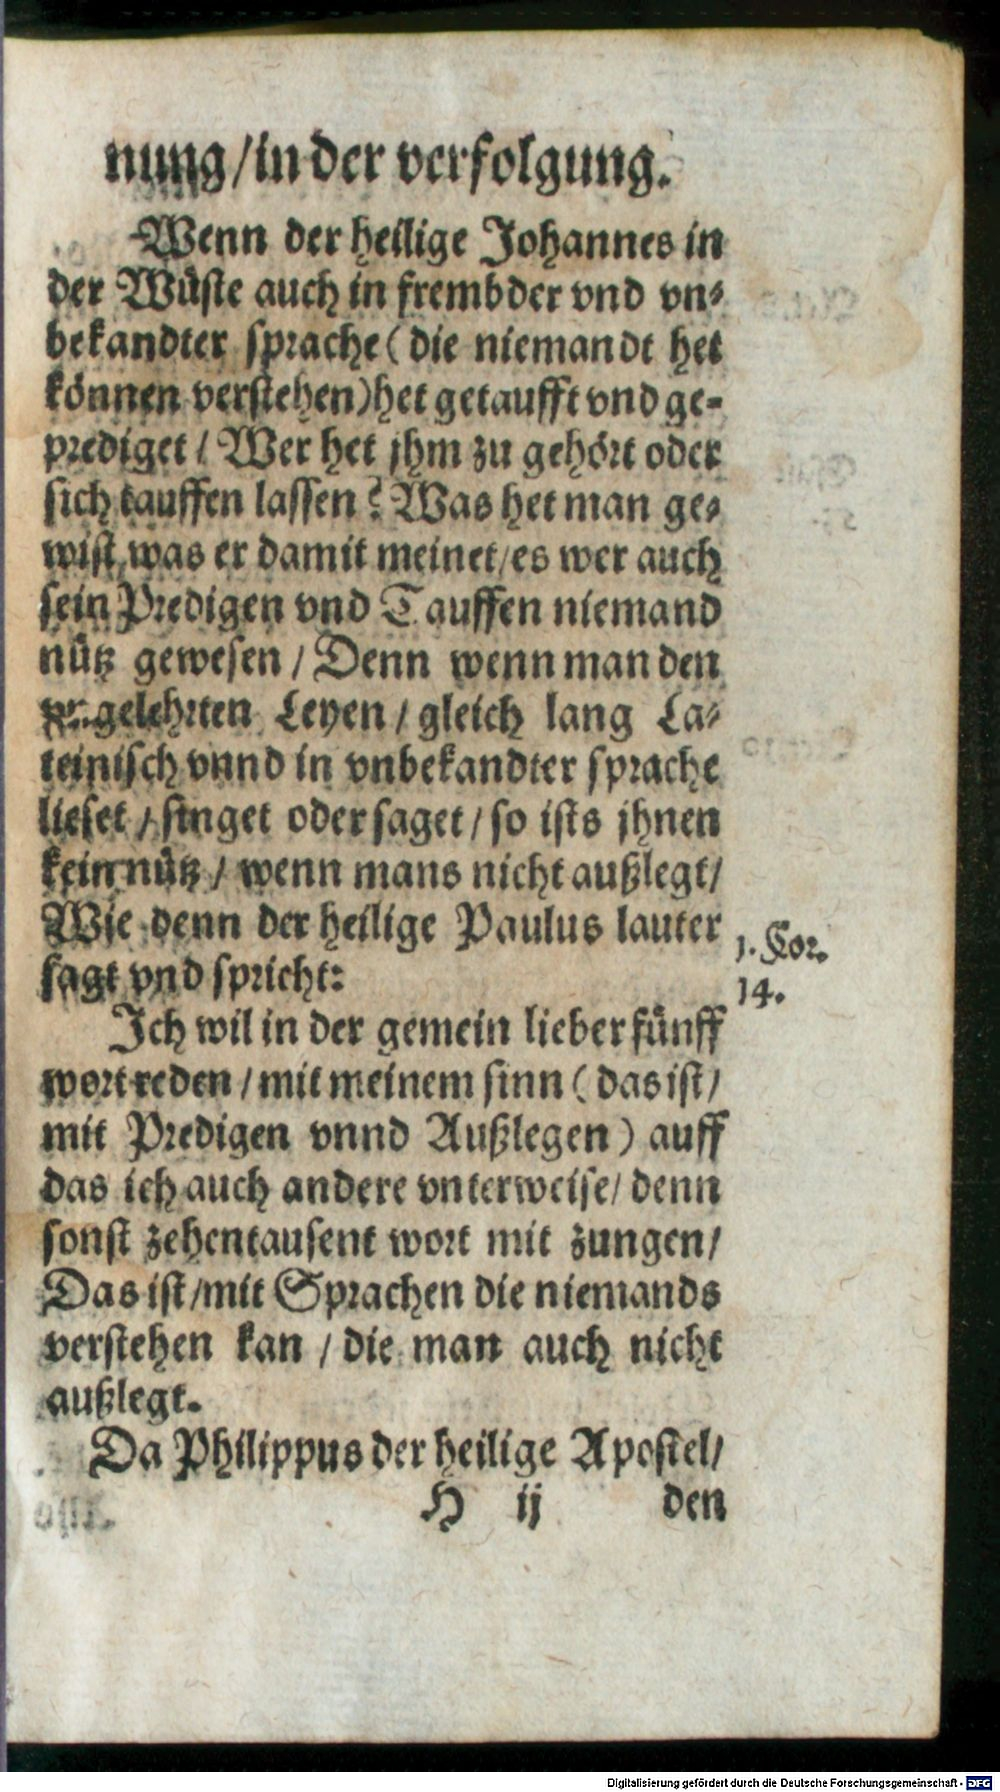 nung/in der verfolgung.
Wenn der heilige Johannes in
der Wüste auch in frembder vnd vn-
bekandter sprache (die niemandt het
können verstehen) het getaufft vnd ge-
prediget / Wer het jhm zu gehört oder
sich tauffen lassen? Was het man ge-
wist, was er damit meinet/es wer auch
sein Predigen vnd Tauffen niemand
nütz gewesen / Denn wenn man den
vngelehrten Leyen / gleich lang La-
teinisch vnnd in vnbekandter sprache
lieset / singet oder saget / so ists jhnen
kein nütz / wenn mans nicht außlegt/
Wie denn der heilige Paulus lauter
sagt vnd spricht:
1. Cor.
14.
Ich wil in der gemein lieber fünff
wort reden / mit meinem sinn (das ist/
mit Predigen vnnd Außlegen) auff
das ich auch andere vnterweise/ denn
sonst zehentausent wort mit zungen/
Das ist/mit Sprachen die niemands
verstehen kan / die man auch nicht
außlegt.
Da Philippus der heilige Apostel/
H ij den
Digitalisierung gefördert durch die Deutsche Forschungsgemeinschaft - DFG